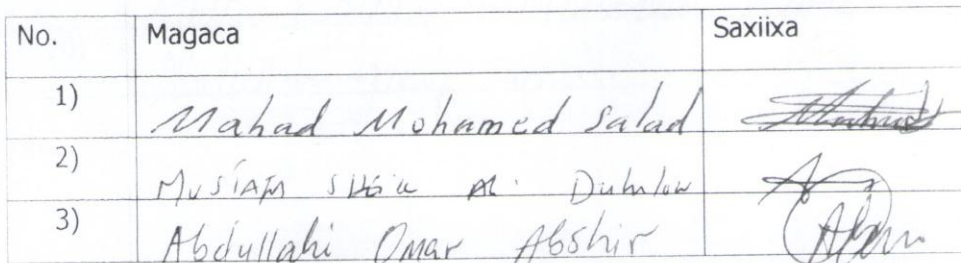 No. Magaca Saxiixa
1) Mahad Mohamed Salad
2) Ali Duhulow
3) Abdullahi Omar Abshir